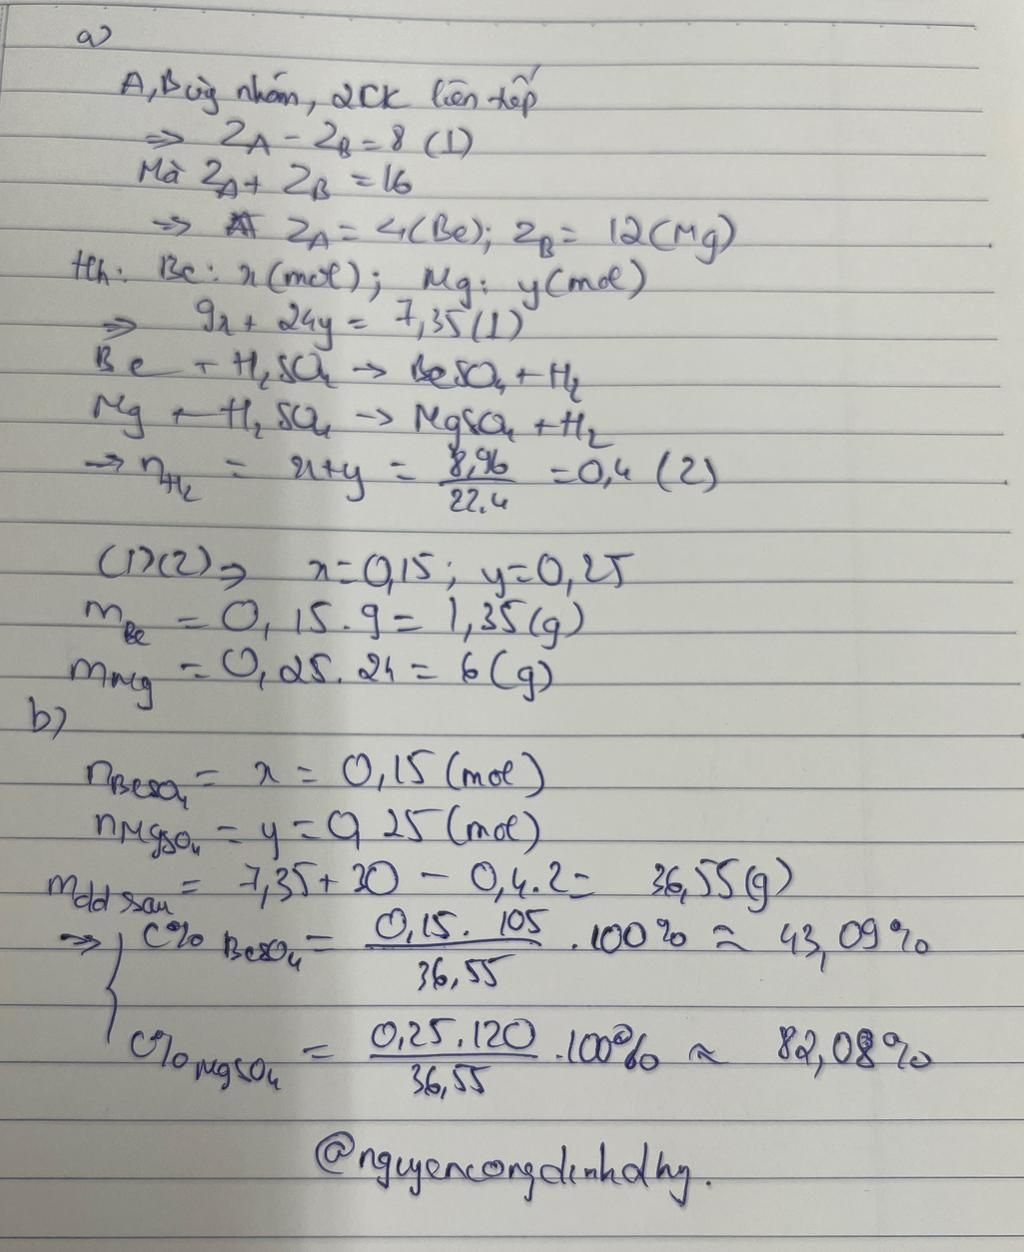 a)
A, B cùg nhóm, 2CK liên tiếp
=> Z_A - Z_B = 8 (1)
Mà Z_A + Z_B = 16
=> Z_A = 4(Be); Z_B = 12(Mg)
Hh: Be: x(mol); Mg: y(mol)
=> 9x + 24y = 7,35 (1)
Be + H₂SO₄ → BeSO₄ + H₂
Mg + H₂SO₄ → MgSO₄ + H₂
→ n_H₂ = x+y = 8,96/22,4 = 0,4 (2)
(1)(2) => x=0,15; y=0,25
m_Be = 0,15.9 = 1,35(g)
m_Mg = 0,25.24 = 6(g)
b)
n_BeSO₄ = x = 0,15(mol)
n_MgSO₄ = y = 0,25(mol)
m_dd sau = 7,35 + 30 - 0,4.2 = 36,55(g)
=> { C%_BeSO₄ = 0,15.105/36,55 .100% ≈ 43,09%
C%_MgSO₄ = 0,25.120/36,55 .100% ≈ 82,08%
@nguyencongdinhdhg.